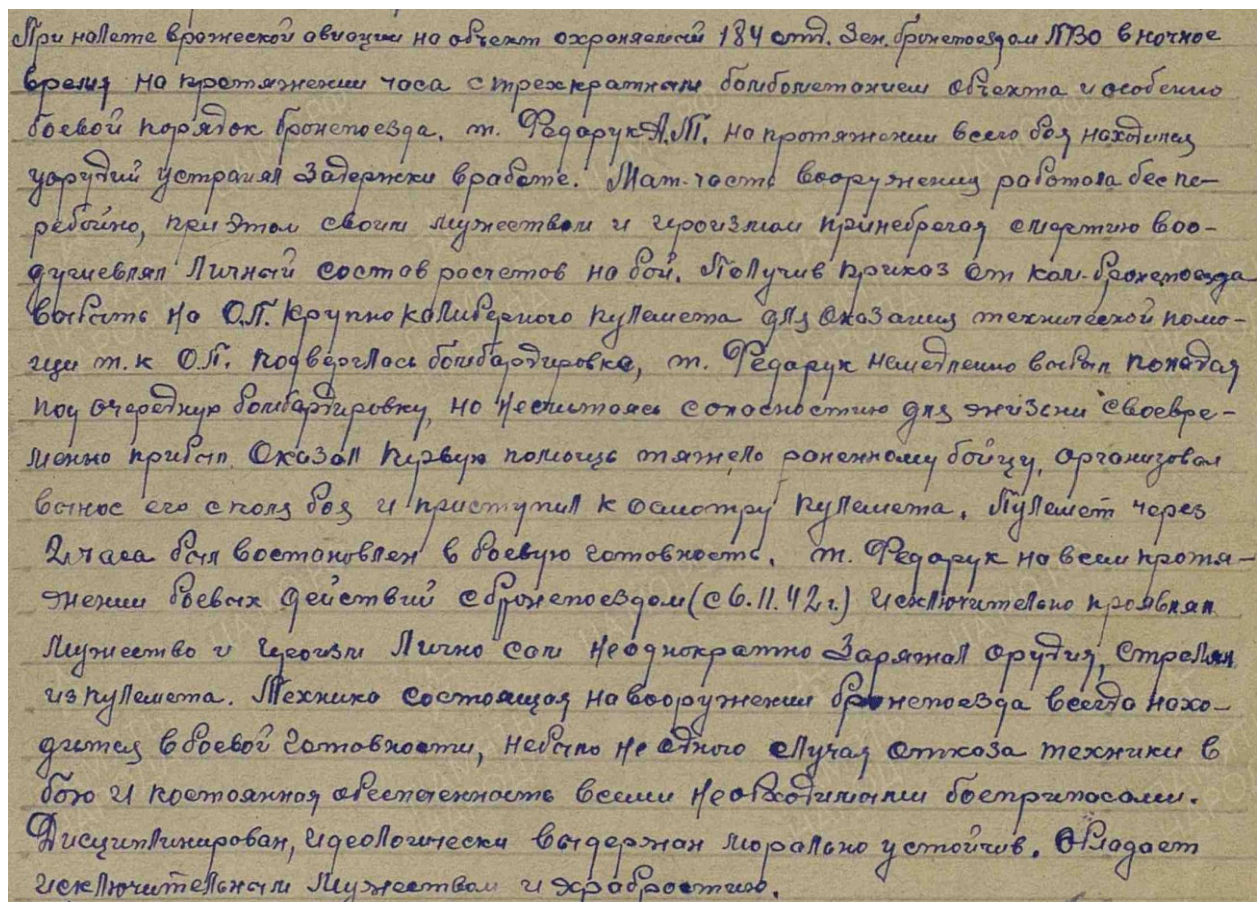 При налете вражеской авиации на объект охраняемый 184 отд. Зен. бронепоездом ПВО в ночное
время на протяжении часа с трехкратным бомбометанием объекта и особенно
боевой порядок бронепоезда. т. Федарук А.Т. на протяжении всего боя находился
у орудий устранял задержки в работе. Мат-часть вооружения работала беспе-
ребойно, при этом своим мужеством и героизмом принебрегая смертию воо-
душевлял личный состав расчетов на бой. Получив приказ от ком-бронепоезда
выбыть на О.П. Крупнокалиберного пулемета для оказания технической помо-
щи т.к О.П. подверглась бомбардировке, т. Федарук немедленно выбыл попадая
под очередную бомбардировку, но несчитаясь сопасностию для жизни своевре-
менно прибыл Оказал первую помощь тяжело раненному бойцу, организовал
вынос его с поля боя и приступил к осмотру пулемета. Пулемет через
2 часа был востановлен в боевую готовность. т. Федарук на всем протя-
жении боевых действий с бронепоездом (с 6.11.42 г.) исключительно проявлял
мужество и героизм Лично сам неоднократно заряжал орудия, стрелял
из пулемета. Техника состоящая на вооружении бронепоезда всегда нахо-
дится в боевой готовности, небыло не одного случая отказа техники в
бою и постоянная обеспеченность всеми необходимыми боеприпасами.
Дисциплинирован, идеологически выдержан морально устойчив. Обладает
исключительным мужеством и храбростию.
НАРОДА